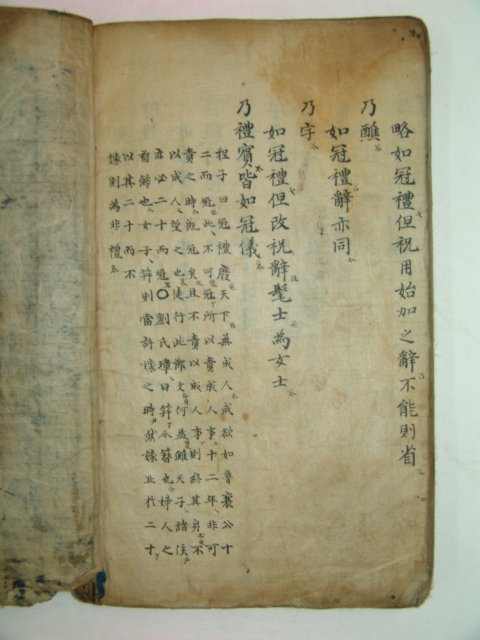 略如冠禮但祝用始加之辭不能則省
乃醮
如冠禮辭亦同
乃字
如冠禮但改祝辭髦士為女士
乃禮賓皆如冠儀
程子曰冠禮廢天下無成人或欲如魯襄公十
二而冠此不可冠所以責成人事十二年非可
責之時旣冠矣且不責以成人事則終其身不
以成人望之也徒行此節文何益雖天子諸侯
亦必二十而冠○劉氏璋曰笄今簪也婦人之
首飾也女子笄則當許嫁之時然嫁止於二十
以其二十而不
嫁則為非禮